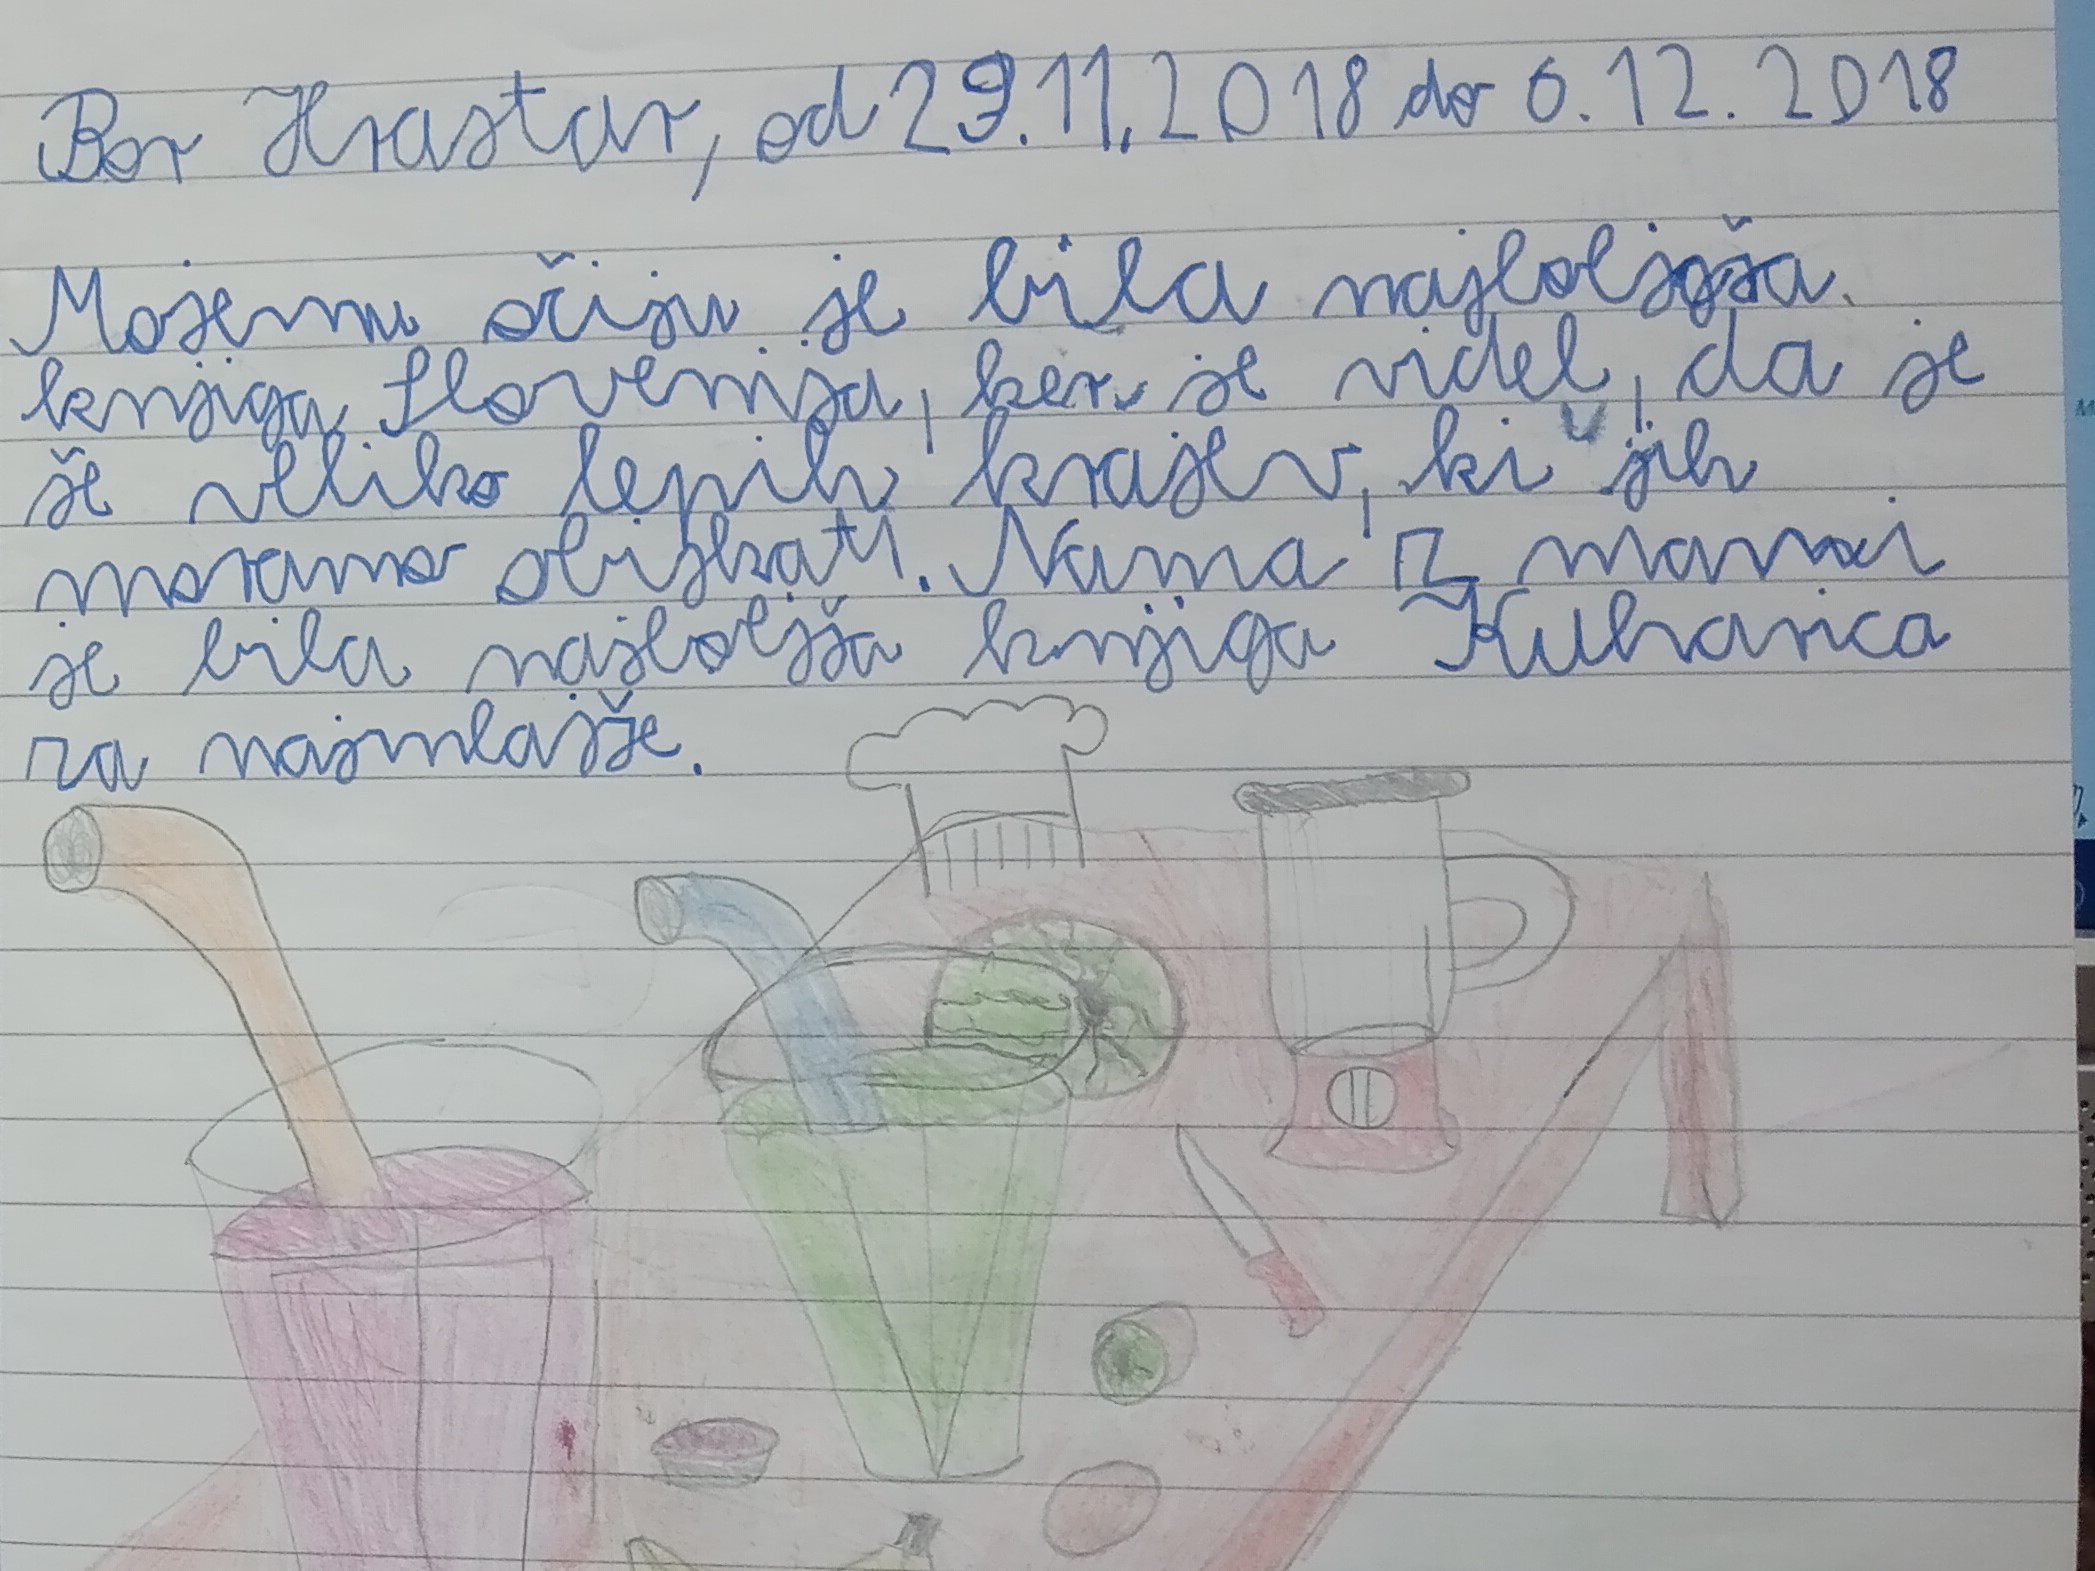 Bor Hrastar, od 29.11.2018 do 6.12.2018
Mojemu očiju je bila najboljša
knjiga Slovenija, ker je videl, da je
še veliko lepih krajev, ki jih
moramo obiskati. Nama z mami
je bila najboljša knjiga Kuharica
za najmlajše.